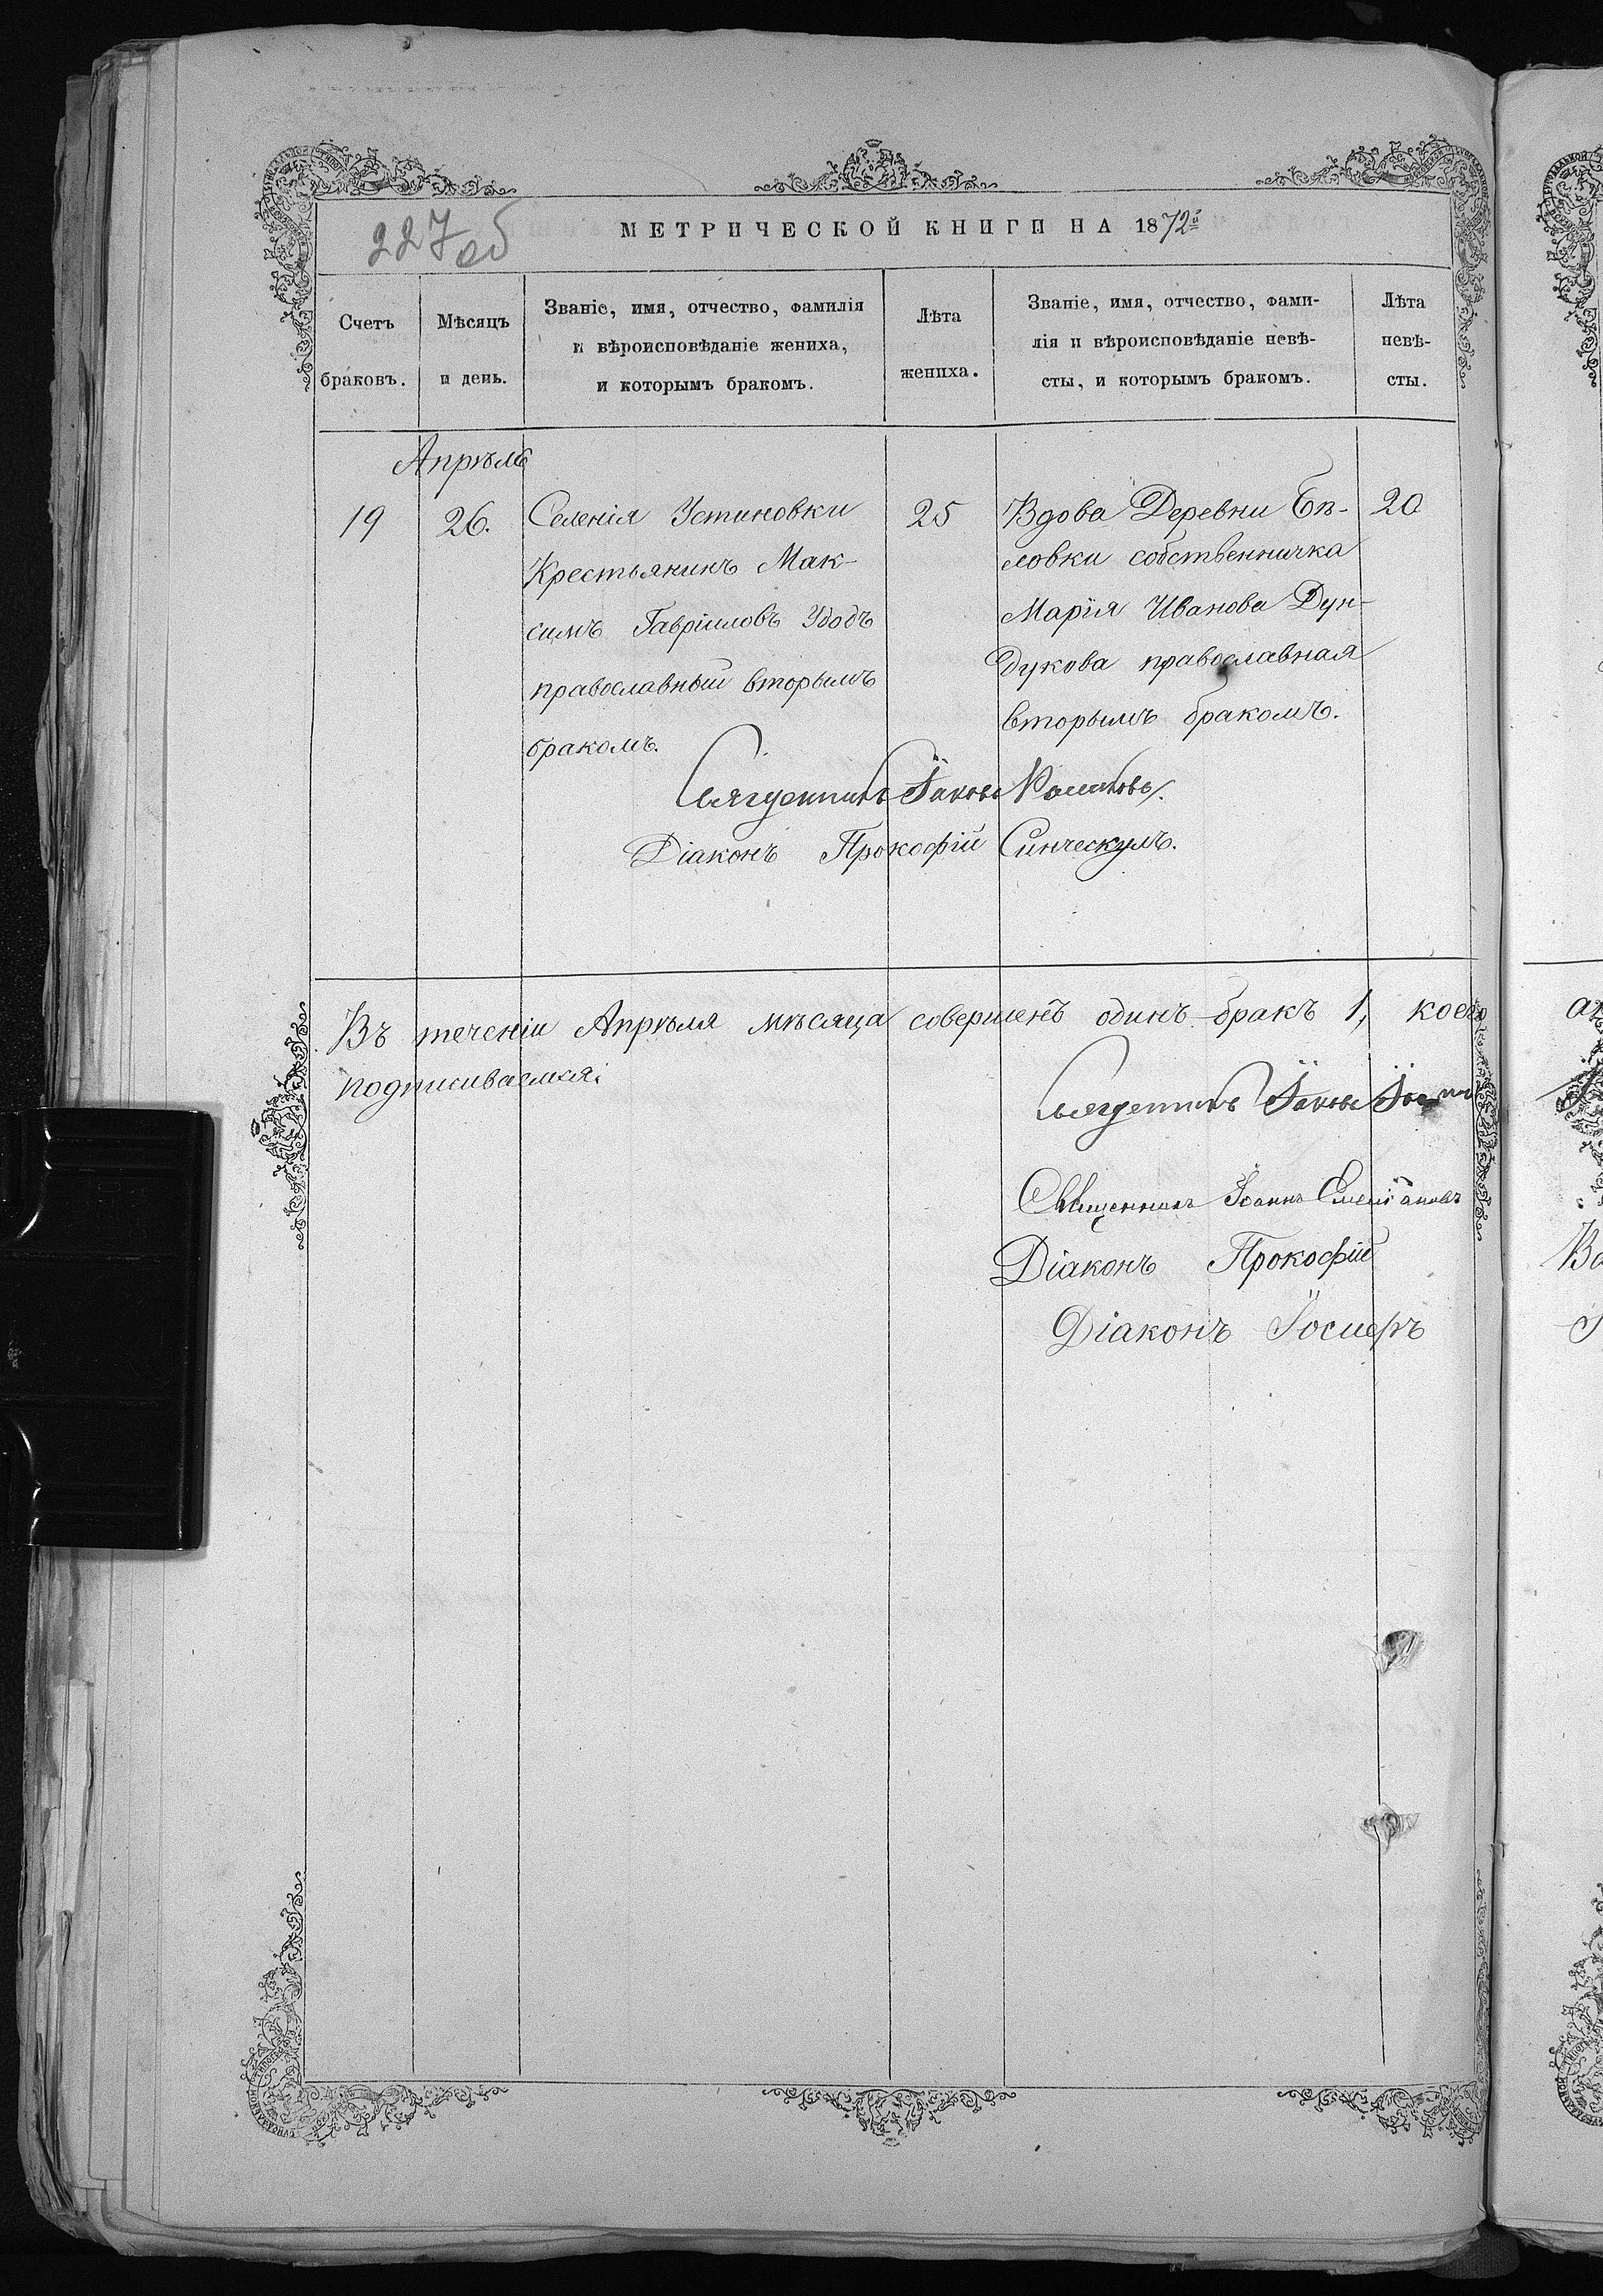 227об
МЕТРИЧЕСКОЙ КНИГИ НА 1872й
Счетъ браковъ.
Мѣсяцъ и день.
Званіе, имя, отчество, фамилія
и вѣроисповѣданіе жениха,
и которымъ бракомъ.
Лѣта жениха.
Званіе, имя, отчество, фами-
лія и вѣроисповѣданіе невѣ-
сты, и которымъ бракомъ.
Лѣта невѣ-
сты.
Апрѣль
19
26.
Селенія Устиновки
Крестьянинъ Мак-
симъ Гавріиловъ Удодъ
православный вторымъ
бракомъ.
25
Вдова Деревни Бѣ-
ловки собственничка
Марія Иванова Дун-
дукова православная
вторымъ бракомъ.
20
Священникъ Іаковъ
Діаконъ Прокофій
Въ теченіи Апрѣля мѣсяца совершенъ одинъ бракъ 1,
подписываемся:
Священникъ Іаковъ
Священникъ Іоаннъ Емельяновъ
Діаконъ Прокофій
Діаконъ Іосифъ